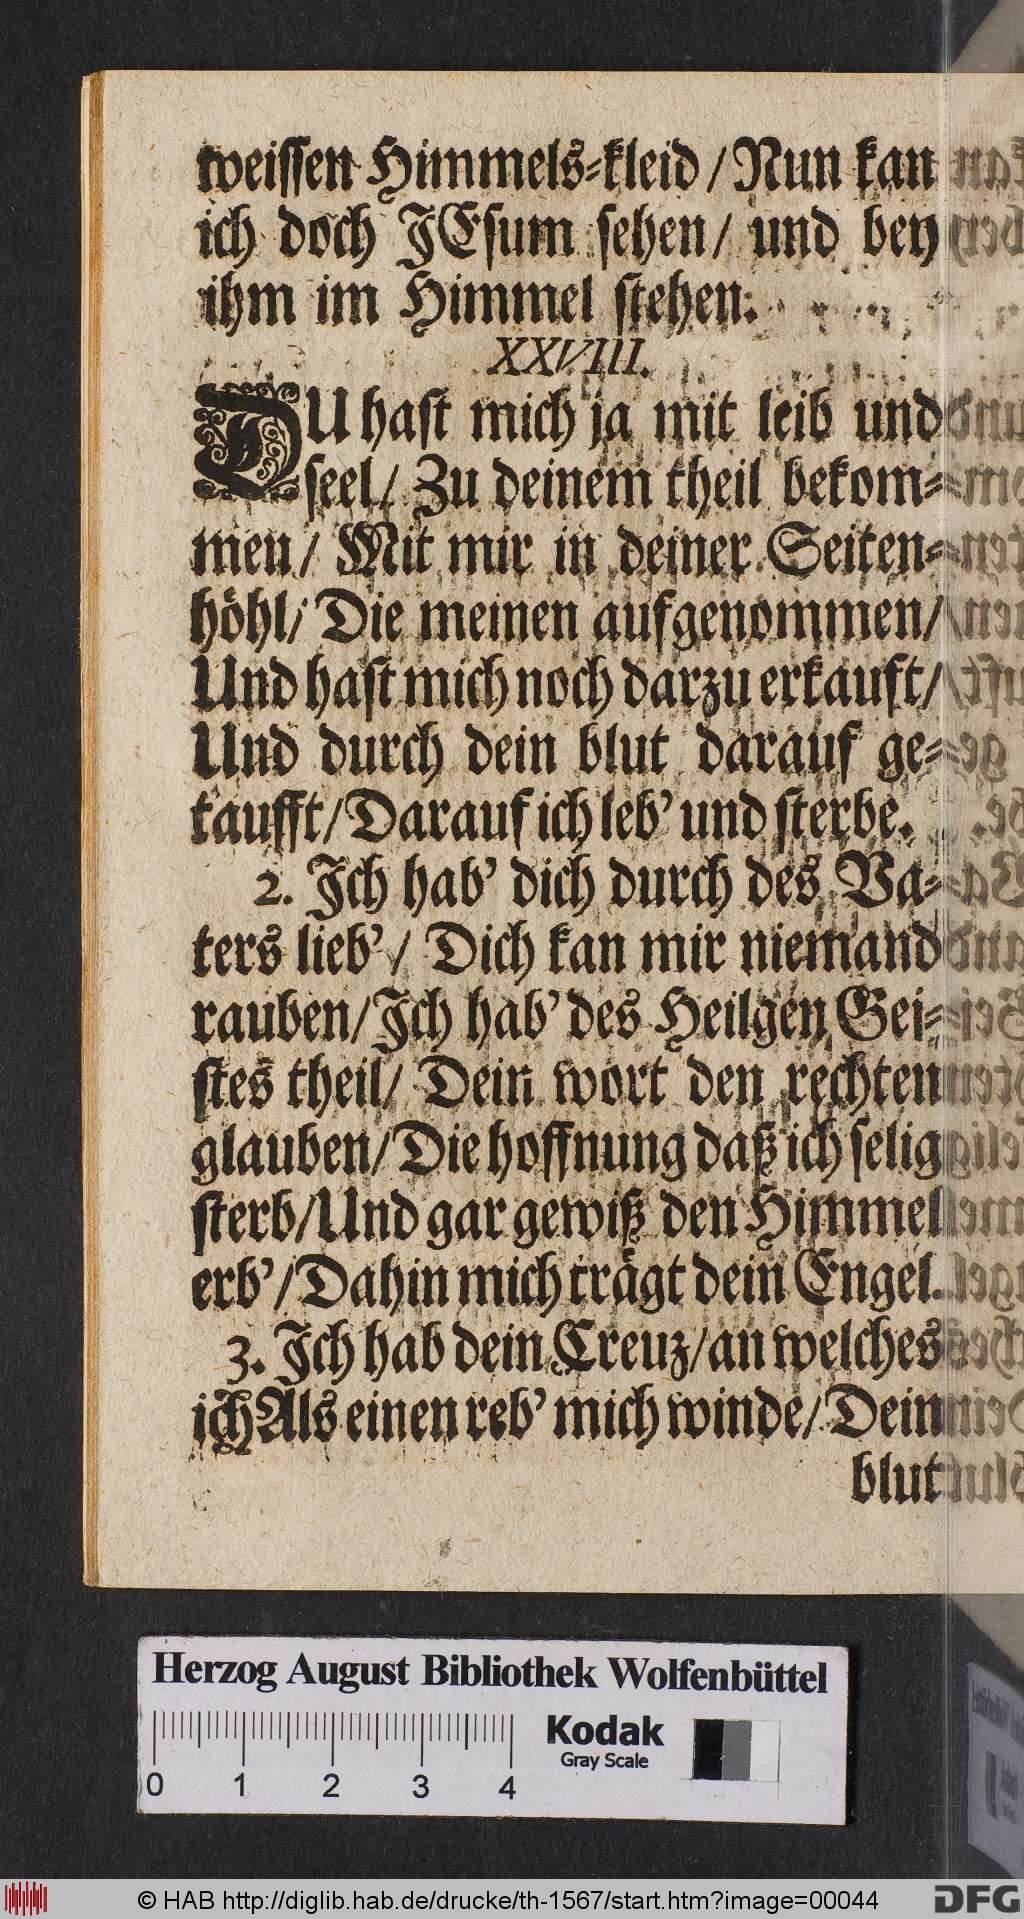 weissen Himmels-kleid / Nun kan
ich doch JEsum sehen / und bey
ihm im Himmel stehen.
XXVIII.
DU hast mich ja mit leib und
seel / Zu deinem theil bekom-
men / Mit mir in deiner Seiten-
höhl / Die meinen aufgenommen /
Und hast mich noch darzu erkauft /
Und durch dein blut darauf ge-
taufft / Darauf ich leb' und sterbe.
2. Jch hab' dich durch des Va-
ters lieb' / Dich kan mir niemand
rauben / Jch hab' des Heilgen Gei-
stes theil / Dein wort den rechten
glauben / Die hoffnung daß ich selig
sterb / Und gar gewiß den Himmel
erb' / Dahin mich trägt dein Engel.
3. Jch hab dein Creuz / an welches
ich Als einen reb' mich winde / Dein
blut
Herzog August Bibliothek Wolfenbüttel
Kodak
Gray Scale
0 1 2 3 4
© HAB http://diglib.hab.de/drucke/th-1567/start.htm?image=00044
DFG